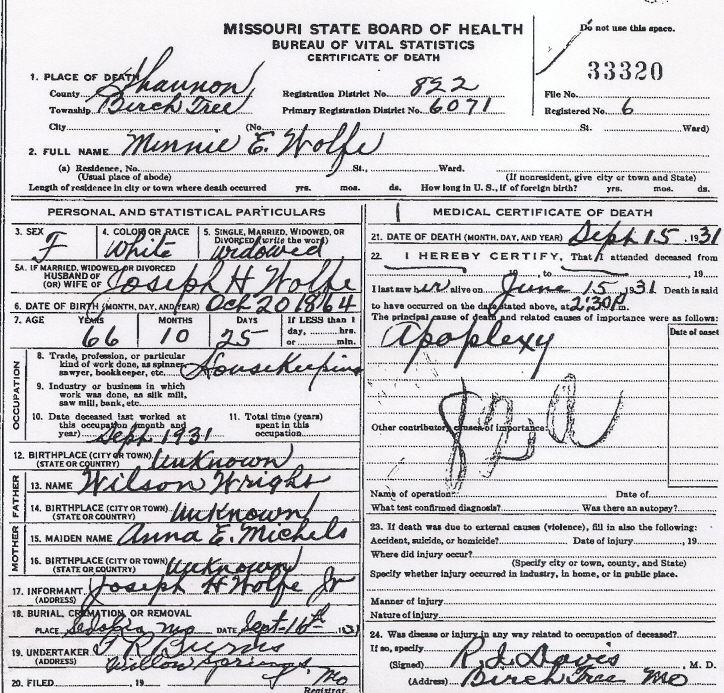 MISSOURI STATE BOARD OF HEALTH
BUREAU OF VITAL STATISTICS
CERTIFICATE OF DEATH
Do not use this space.
33320
1. PLACE OF DEATH
County Shannon Registration District No. 822 File No.
Township Birch Tree Primary Registration District No. 6071 Registered No. 6
City (No. St. Ward)
2. FULL NAME Minnie E. Wolfe
(a) Residence, No. St., Ward.
(Usual place of abode) (If nonresident, give city or town and State)
Length of residence in city or town where death occurred yrs. mos. ds. How long in U. S., if of foreign birth? yrs. mos. ds.
PERSONAL AND STATISTICAL PARTICULARS
3. SEX 4. COLOR OR RACE 5. SINGLE, MARRIED, WIDOWED, OR DIVORCED (write the word)
F White Widowed
5A. IF MARRIED, WIDOWED OR DIVORCED
HUSBAND OF
(OR) WIFE OF Joseph H Wolfe
6. DATE OF BIRTH (MONTH, DAY, AND YEAR) Oct 20 1864
7. AGE YEARS MONTHS DAYS If LESS than 1
day, hrs.
or min.
66 10 25
OCCUPATION
8. Trade, profession, or particular
kind of work done, as spinner,
sawyer, bookkeeper, etc. Housekeeping
9. Industry or business in which
work was done, as silk mill,
saw mill, bank, etc.
10. Date deceased last worked at
this occupation (month and
year) Sept 1931
11. Total time (years)
spent in this
occupation
12. BIRTHPLACE (CITY OR TOWN) Unknown
(STATE OR COUNTRY)
FATHER
13. NAME Wilson Wright
14. BIRTHPLACE (CITY OR TOWN) Unknown
(STATE OR COUNTRY)
MOTHER
15. MAIDEN NAME Anna E. Michels
16. BIRTHPLACE (CITY OR TOWN) Unknown
(STATE OR COUNTRY)
17. INFORMANT Joseph H Wolfe Jr
(ADDRESS)
18. BURIAL, CREMATION, OR REMOVAL
PLACE Mo DATE Sept 16th 1931
19. UNDERTAKER Burns
(ADDRESS) Willow Springs, Mo
20. FILED , 19 Registrar.
MEDICAL CERTIFICATE OF DEATH
21. DATE OF DEATH (MONTH, DAY, AND YEAR) Sept 15, 1931
22. I HEREBY CERTIFY, That I attended deceased from
, to , 19
I last saw her alive on June 15, 1931 Death is said
to have occurred on the date stated above, at 2:30 P.m.
The principal cause of death and related causes of importance were as follows:
Date of onset
Apoplexy
82 a
Other contributory causes of importance:
Name of operation Date of
What test confirmed diagnosis? Was there an autopsy?
23. If death was due to external causes (violence), fill in also the following:
Accident, suicide, or homicide? Date of injury , 19
Where did injury occur?
(Specify city or town, county, and State)
Specify whether injury occurred in industry, in home, or in public place.
Manner of injury
Nature of injury
24. Was disease or injury in any way related to occupation of deceased?
If so, specify
(Signed) R. I. Davis, M. D.
(Address) Birch Tree Mo